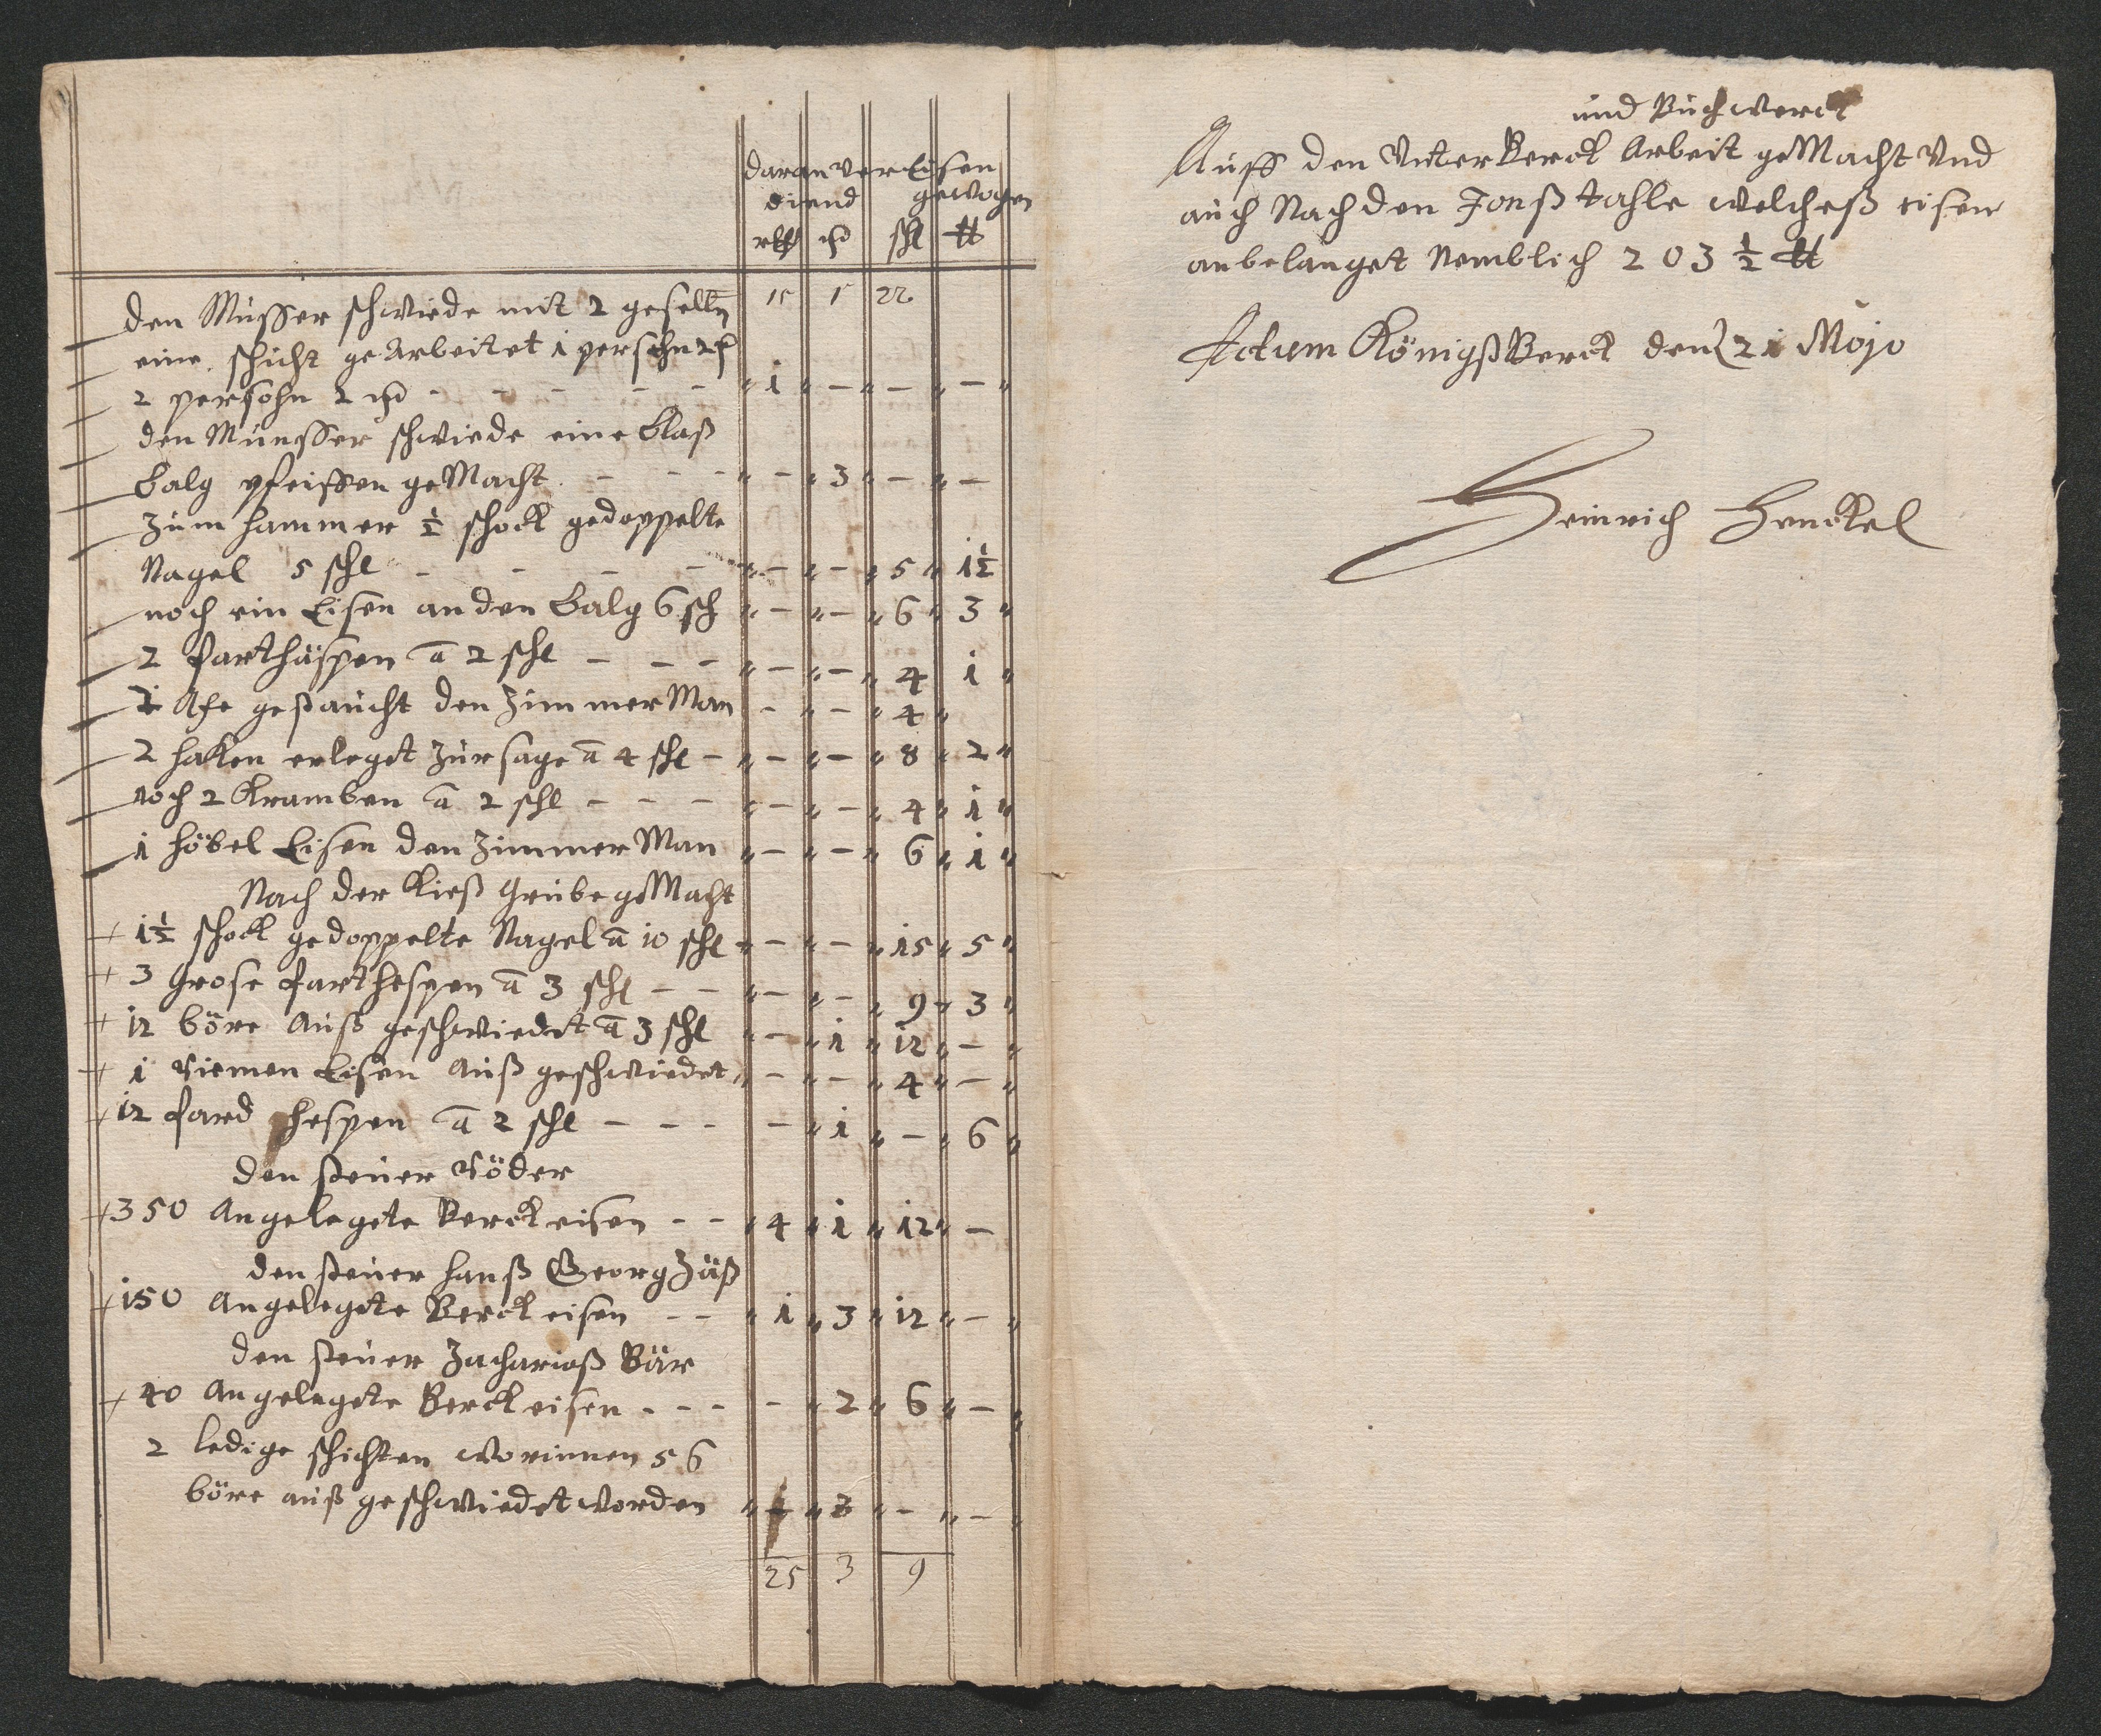 daran ver Eisen
diend gewogen
schl ℔
15 1 22
den Müsser schmiede mit 2 geselln
eine schicht gearbeitet 1 persohn
2 persohn 2 " 1 " – " – " – "
den Münsser schmiede eine blaß
balg pfeiffen geMacht - - - " – " 3 " – " –
Zum hammer ½ schock gedoppelte
Nagel 5 schl - - - - " – " – " 5 " 1½
noch ein Eisen an den balg 6 sch " – " – " 6 " 3 "
2 farthäspen a 2 schl - - - " – " – " 4 1 "
Axe den Zimmer Man – " – " 4 "
2 haken erleget zur sage a 4 schl - " – " – " 8 " 2 "
noch 2 Kramben a 2 schl - - - " – " – " 4 " 1 "
1 höbel Eisen den Zimmer Man " – " – " 6 " 1 "
Nach der Kieß Grube geMacht
+ 1½ schock gedoppelte Nagel a 10 schl " – " – " 15 " 5 "
+ 3 Grose farthespen a 3 schl - - " – " – " 9 " 3 "
+ 12 böre Auß geschmiedet a 3 schl " – " 1 " 12 " – "
+ 1 Riemen Eisen Auß geschmiedet " – " – " 4 " – "
+ 12 fard hespen a 2 schl - - - – " 1 " – " 6 "
den steiner Röder
+ 350 Angelegete Berck eisen - - " 4 " 1 " 12 " –
den steiner hanß Georg Zäß
+ 150 Angelegete Berck eisen - - " 1 " 3 " 12 " – "
den steiner Zacharias Bär
+ 40 Angelegete Berck eisen - - - – " 2 " 6 " – "
2 ledige schichten worinnen 56
böre auß geschmiedet worden " " " – " – "
25 3 9
und Buchwerck
Auff den Unter Berck Arbeit geMacht Und
auch Nach den Jonß tahle welcheß eisen
anbelanget Nemblich 203 ½ ℔
Actum Königß Berck den 21 Mojo
Heinrich Henckel